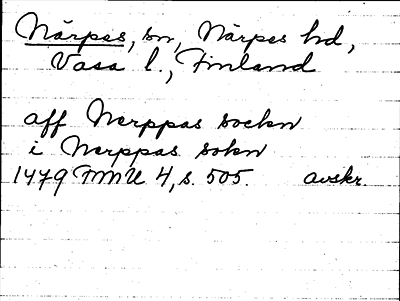 Närpes, sn, Närpes hd,
Vasa l., Finland
aff Nerppas sockn
i Nerppas sokn
1479 FMU 4, s. 505. avskr.